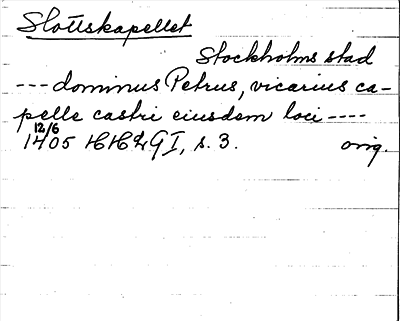 Slottskapellet
Stockholms stad
--- dominus Petrus, vicarius ca-
pelle castri eiusdem loci ----
12/6
1405 HHLGI, s. 3. orig.